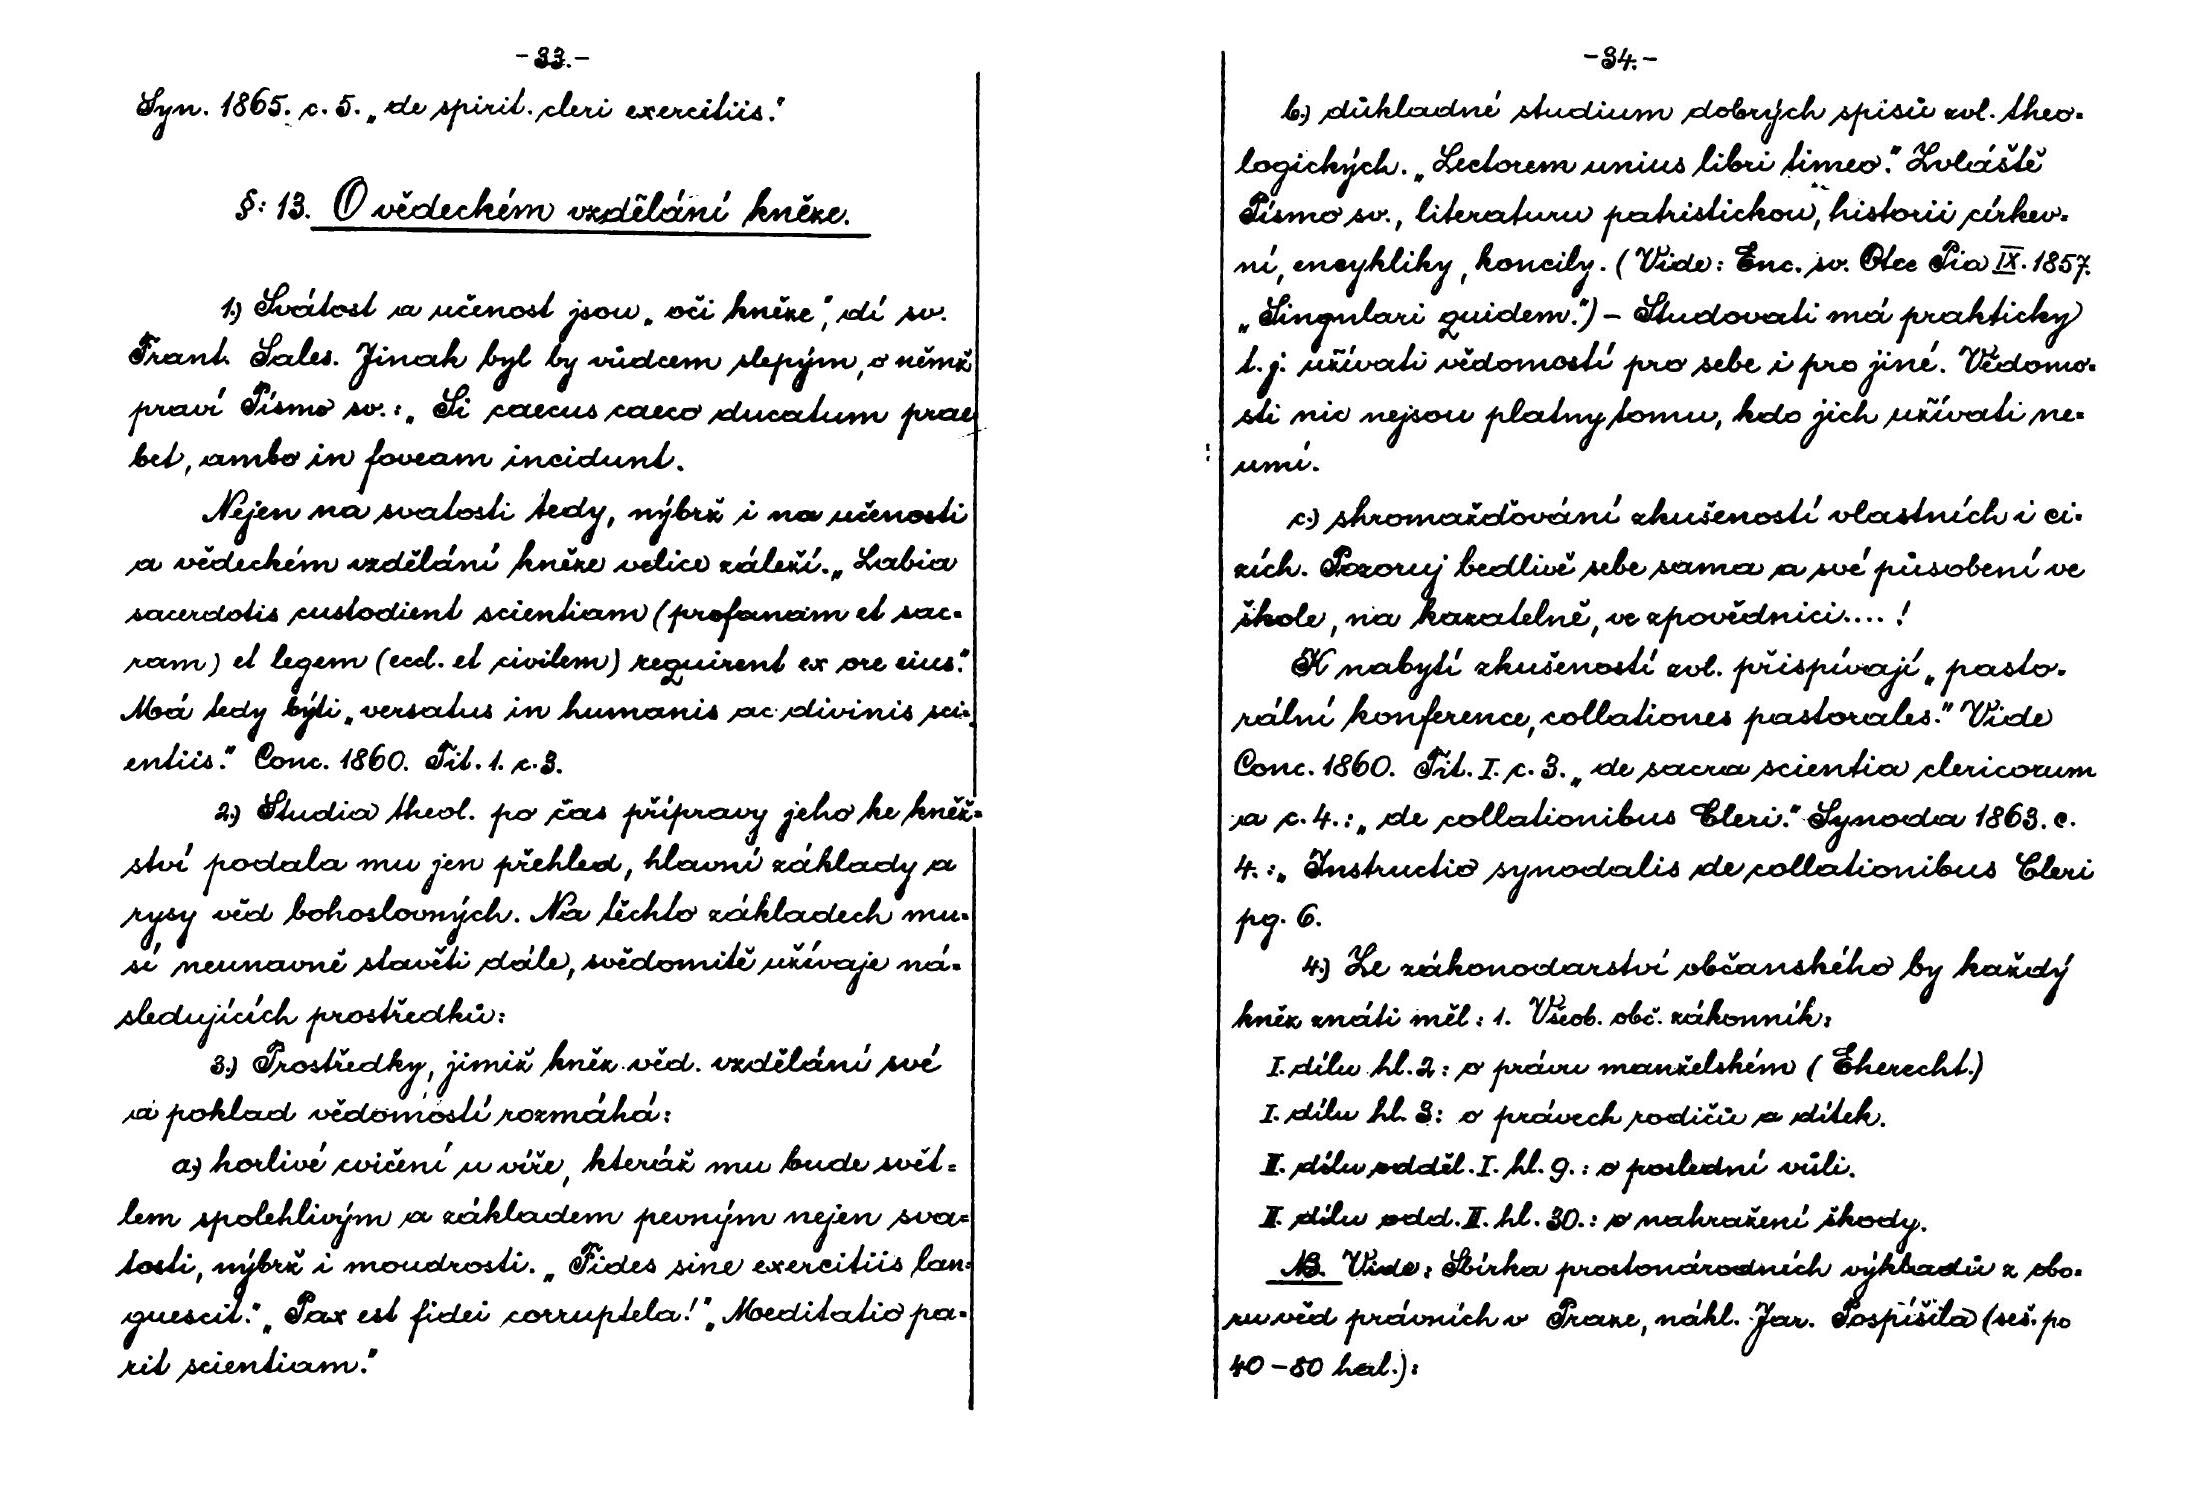 -33.-
Syn. 1865. c. 5. „de spirit. cleri exercitiis.“
§: 13. O vědeckém vzdělání kněze.
1.) Svátost a učenost jsou „oči kněze“, dí sv.
Frant. Sales. Jinak byl by vůdcem slepým, o němž
praví Písmo sv.: „Si caecus caeco ducatum prae
bet, ambo in foveam incidunt.
Nejen na svatosti tedy, nýbrž i na učenosti
a vědeckém vzdělání kněze velice záleží. „Labia
sacerdotis custodient scientiam (profanam et sac-
ram) et legem (eccl. et civilem) requirent ex ore eius.“
Má tedy býti „versatus in humanis ac divinis sci-
entiis.“ Conc. 1860. Tit. 1. c. 3.
2.) Studia theol. po čas přípravy jeho ke kněž-
ství podala mu jen přehled, hlavní základy a
rysy věd bohoslovných. Na těchto základech mu-
sí neunavně stavěti dále, svědomitě užívaje ná-
sledujících prostředků:
3.) Prostředky, jimiž kněz věd. vzdělání své
a poklad vědomostí rozmáhá:
a.) horlivé cvičení u víře, kteráž mu bude svět-
lem spolehlivým a základem pevným nejen sva-
tosti, nýbrž i moudrosti. „Fides sine exercitiis lan-
guescit.“ „Pax est fidei corruptela!“ „Meditatio pa-
rit scientiam.“
-34.-
b.) důkladné studium dobrých spisů zvl. theo-
logických. „Lectorem unius libri timeo.“ Zvláště
Písmo sv., literaturu patristickou, historii církev-
ní, encykliky, koncily. (Vide: Enc. sv. Otce Pia IX. 1857.
„Singulari quidem.“) – Studovati má prakticky
t. j. užívati vědomostí pro sebe i pro jiné. Vědomo-
sti nic nejsou platny tomu, kdo jich užívati ne-
umí.
c.) shromažďování zkušeností vlastních i ci-
zích. Pozoruj bedlivě sebe sama a své působení ve
škole, na kazatelně, ve zpovědnici.... !
K nabytí zkušeností zvl. přispívají „pasto-
rální konference, collationes pastorales.“ Vide
Conc. 1860. Tit. I. c. 3. „de sacra scientia clericorum
a c. 4.: „de collationibus Cleri.“ Synoda 1863. c.
4.: „Instructio synodalis de collationibus Cleri
pg. 6.
4.) Ze zákonodarství občanského by každý
kněz znáti měl: 1. Všeob. obč. zákonník:
I. dílu hl. 2: o právu manželském (Eherecht.)
I. dílu hl. 3: o právech rodičů a dítek.
II. dílu odděl. I. hl. 9.: o poslední vůli.
II. dílu odd. II. hl. 30.: o nahražení škody.
NB. Vide: Sbírka prostonárodních výkladů z obo-
ru věd právních v Praze, nákl. Jar. Pospíšila (seš. po
40 – 80 hal.):